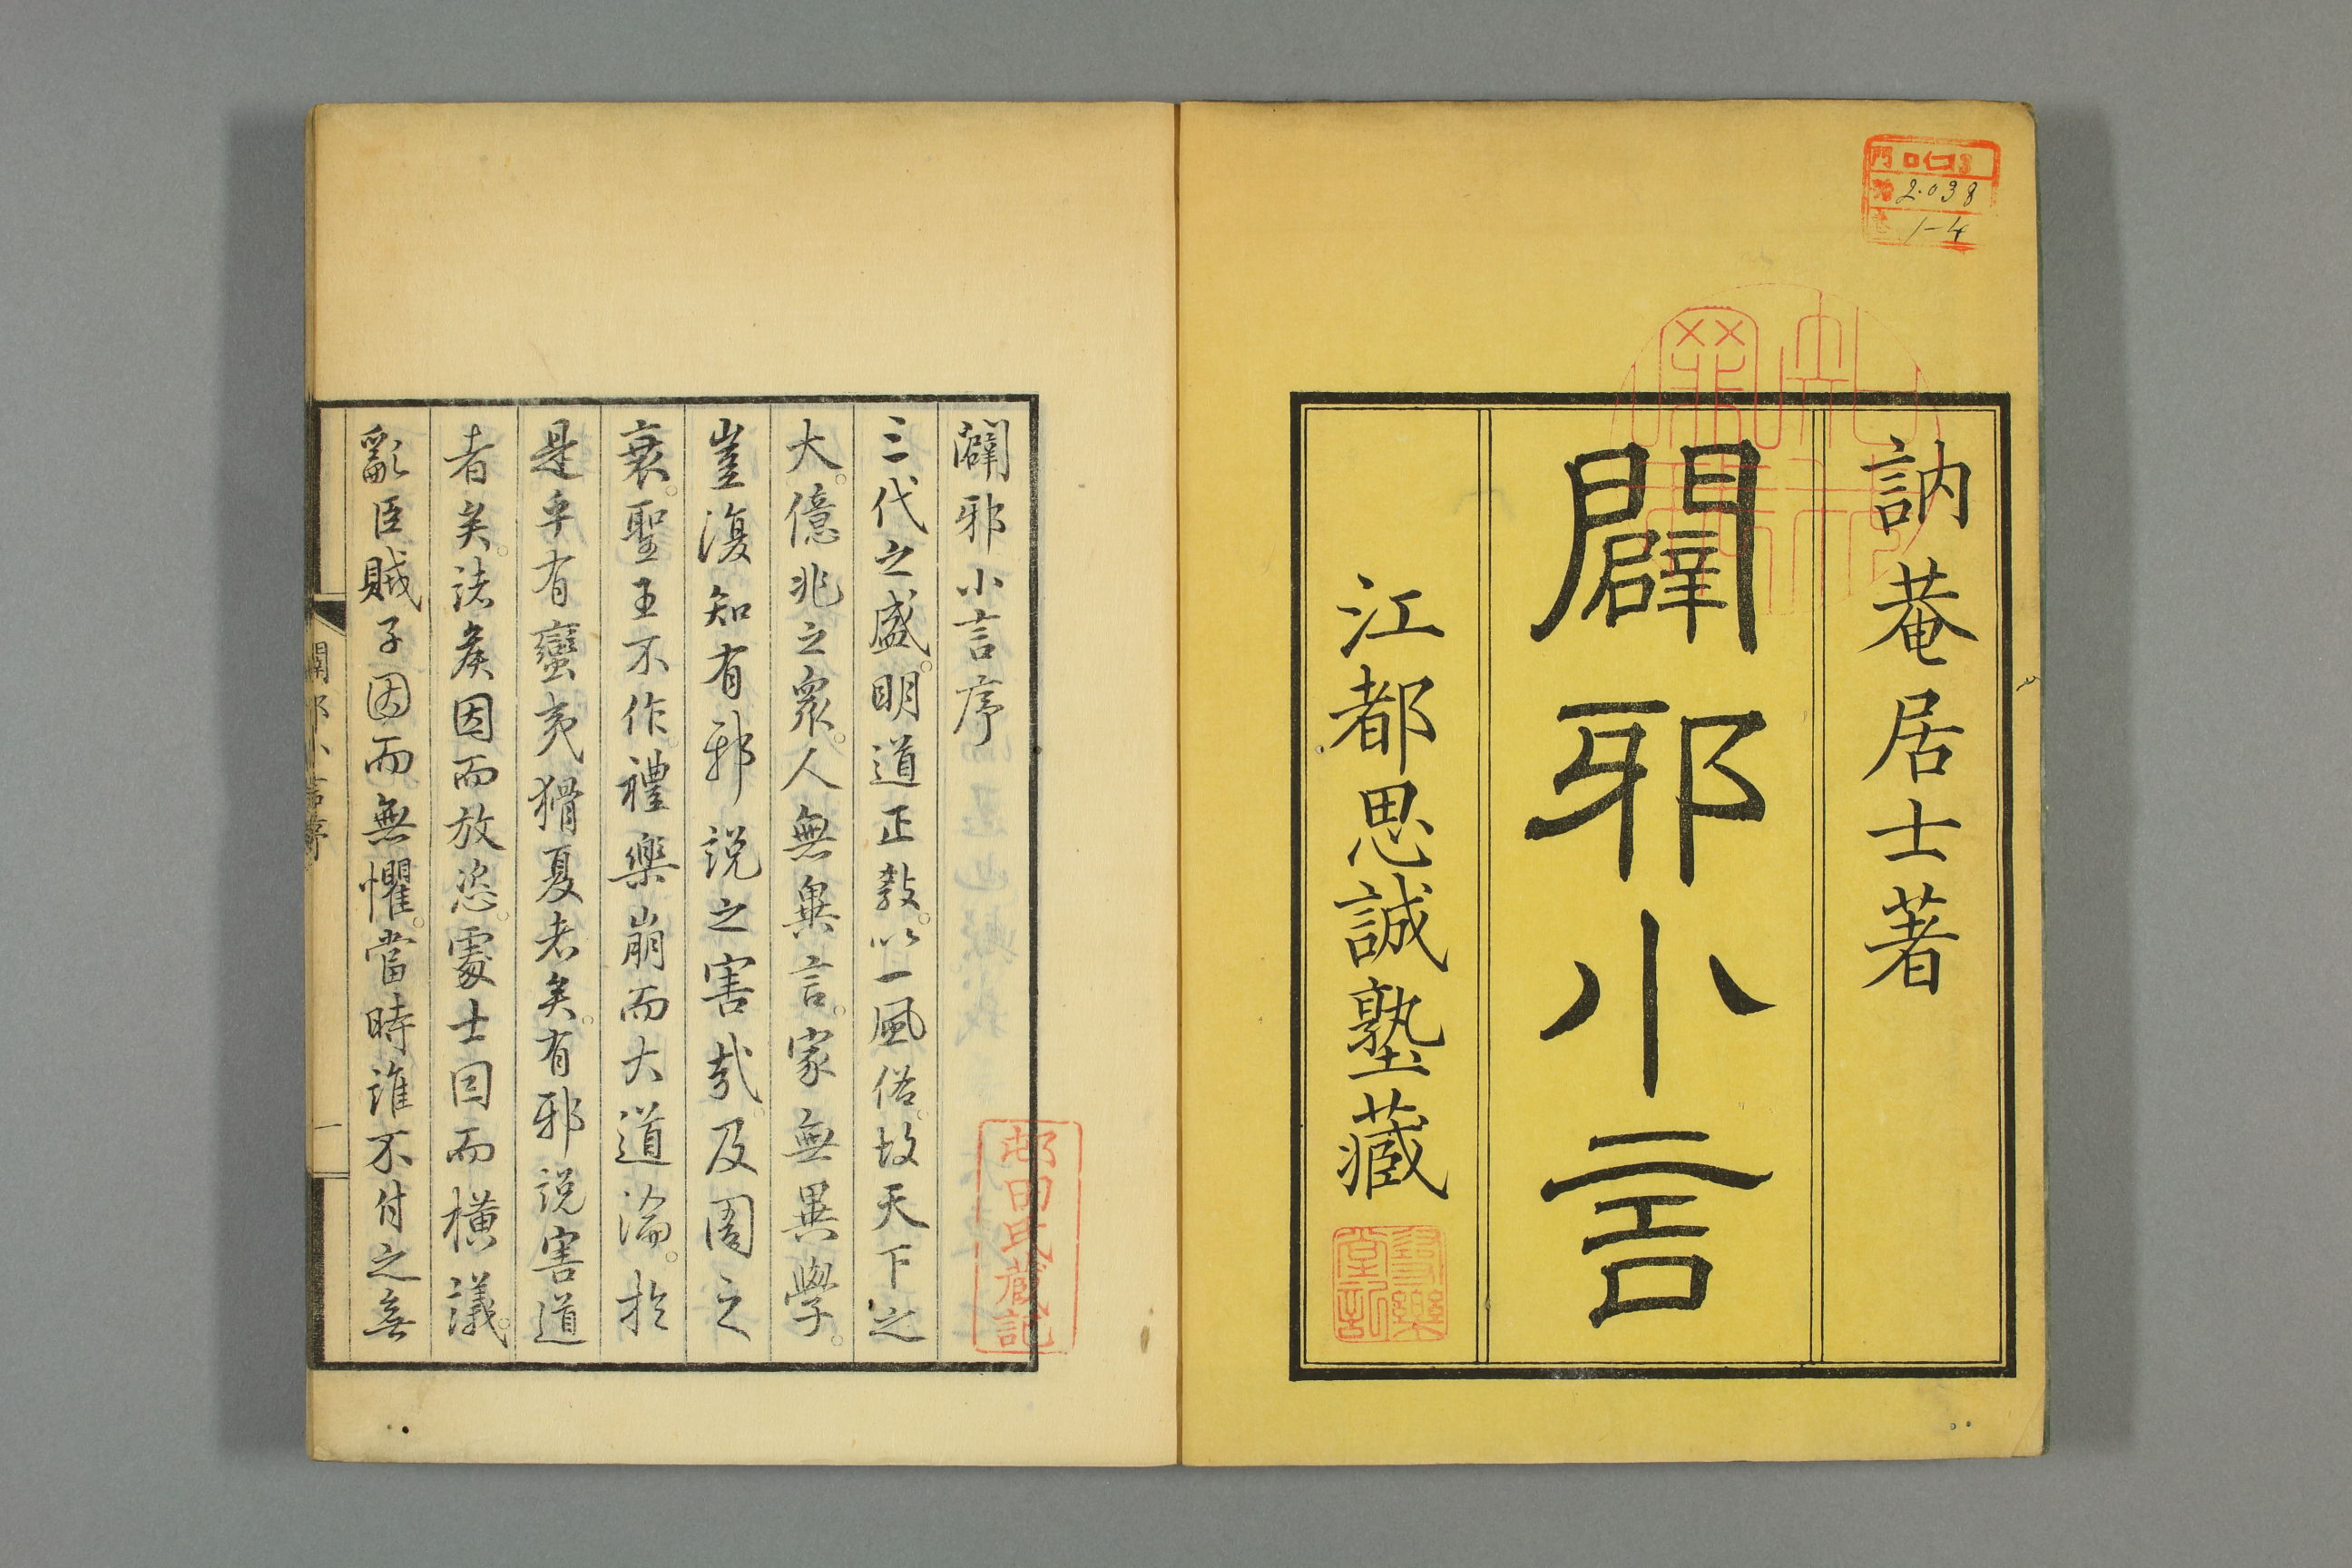 訥菴居士著
闢邪小言
江都思誠塾藏
門 ロ13
2038
1-4
闢邪小言序
三代之盛。明道正敎。以一風俗。故天下之
大。億兆之衆。人無異言。家無異學。
豈復知有邪說之害哉。及周之
衰。聖王不作。禮樂崩而大道淪。於
是乎有蠻夷猾夏者矣。有邪說害道
者矣。諸矦因而放恣。處士因而橫議。
亂臣賊子因而無懼。當時誰不付之無
闢邪小言序
一
邨田氏藏記